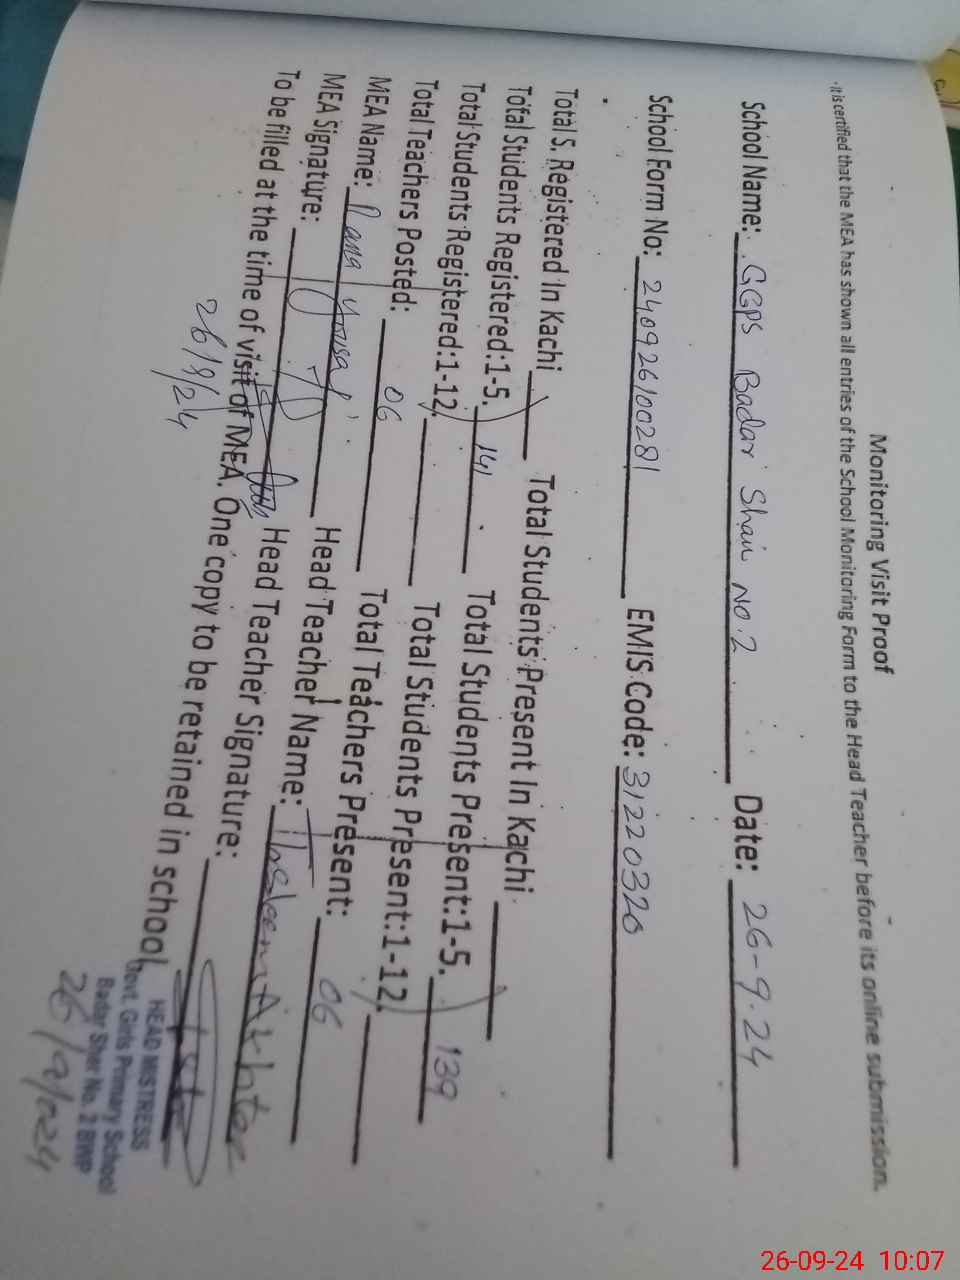 Monitoring Visit Proof
It is certified that the MEA has shown all entries of the School Monitoring Form to the Head Teacher before its online submission.
School Name: GGPS Badar Shair NO.2 Date: 26-9-24
School Form No: 240926100281 EMIS Code: 31220320
Total S. Registered In Kachi Total Students Present In Kachi
Total Students Registered:1-5. 141 Total Students Present:1-5. 139
Total Students Registered:1-12. Total Students Present:1-12.
Total Teachers Posted: 06 Total Teachers Present: 06
MEA Name: Rana Yousaf Head Teacher Name: Akhtar
MEA Signature: Head Teacher Signature:
To be filled at the time of visit of MEA. One copy to be retained in school.
26/9/24
HEAD MISTRESS
Govt. Girls Primary School
Badar Sher No. 2 BWP
26/9/2024
26-09-24 10:07